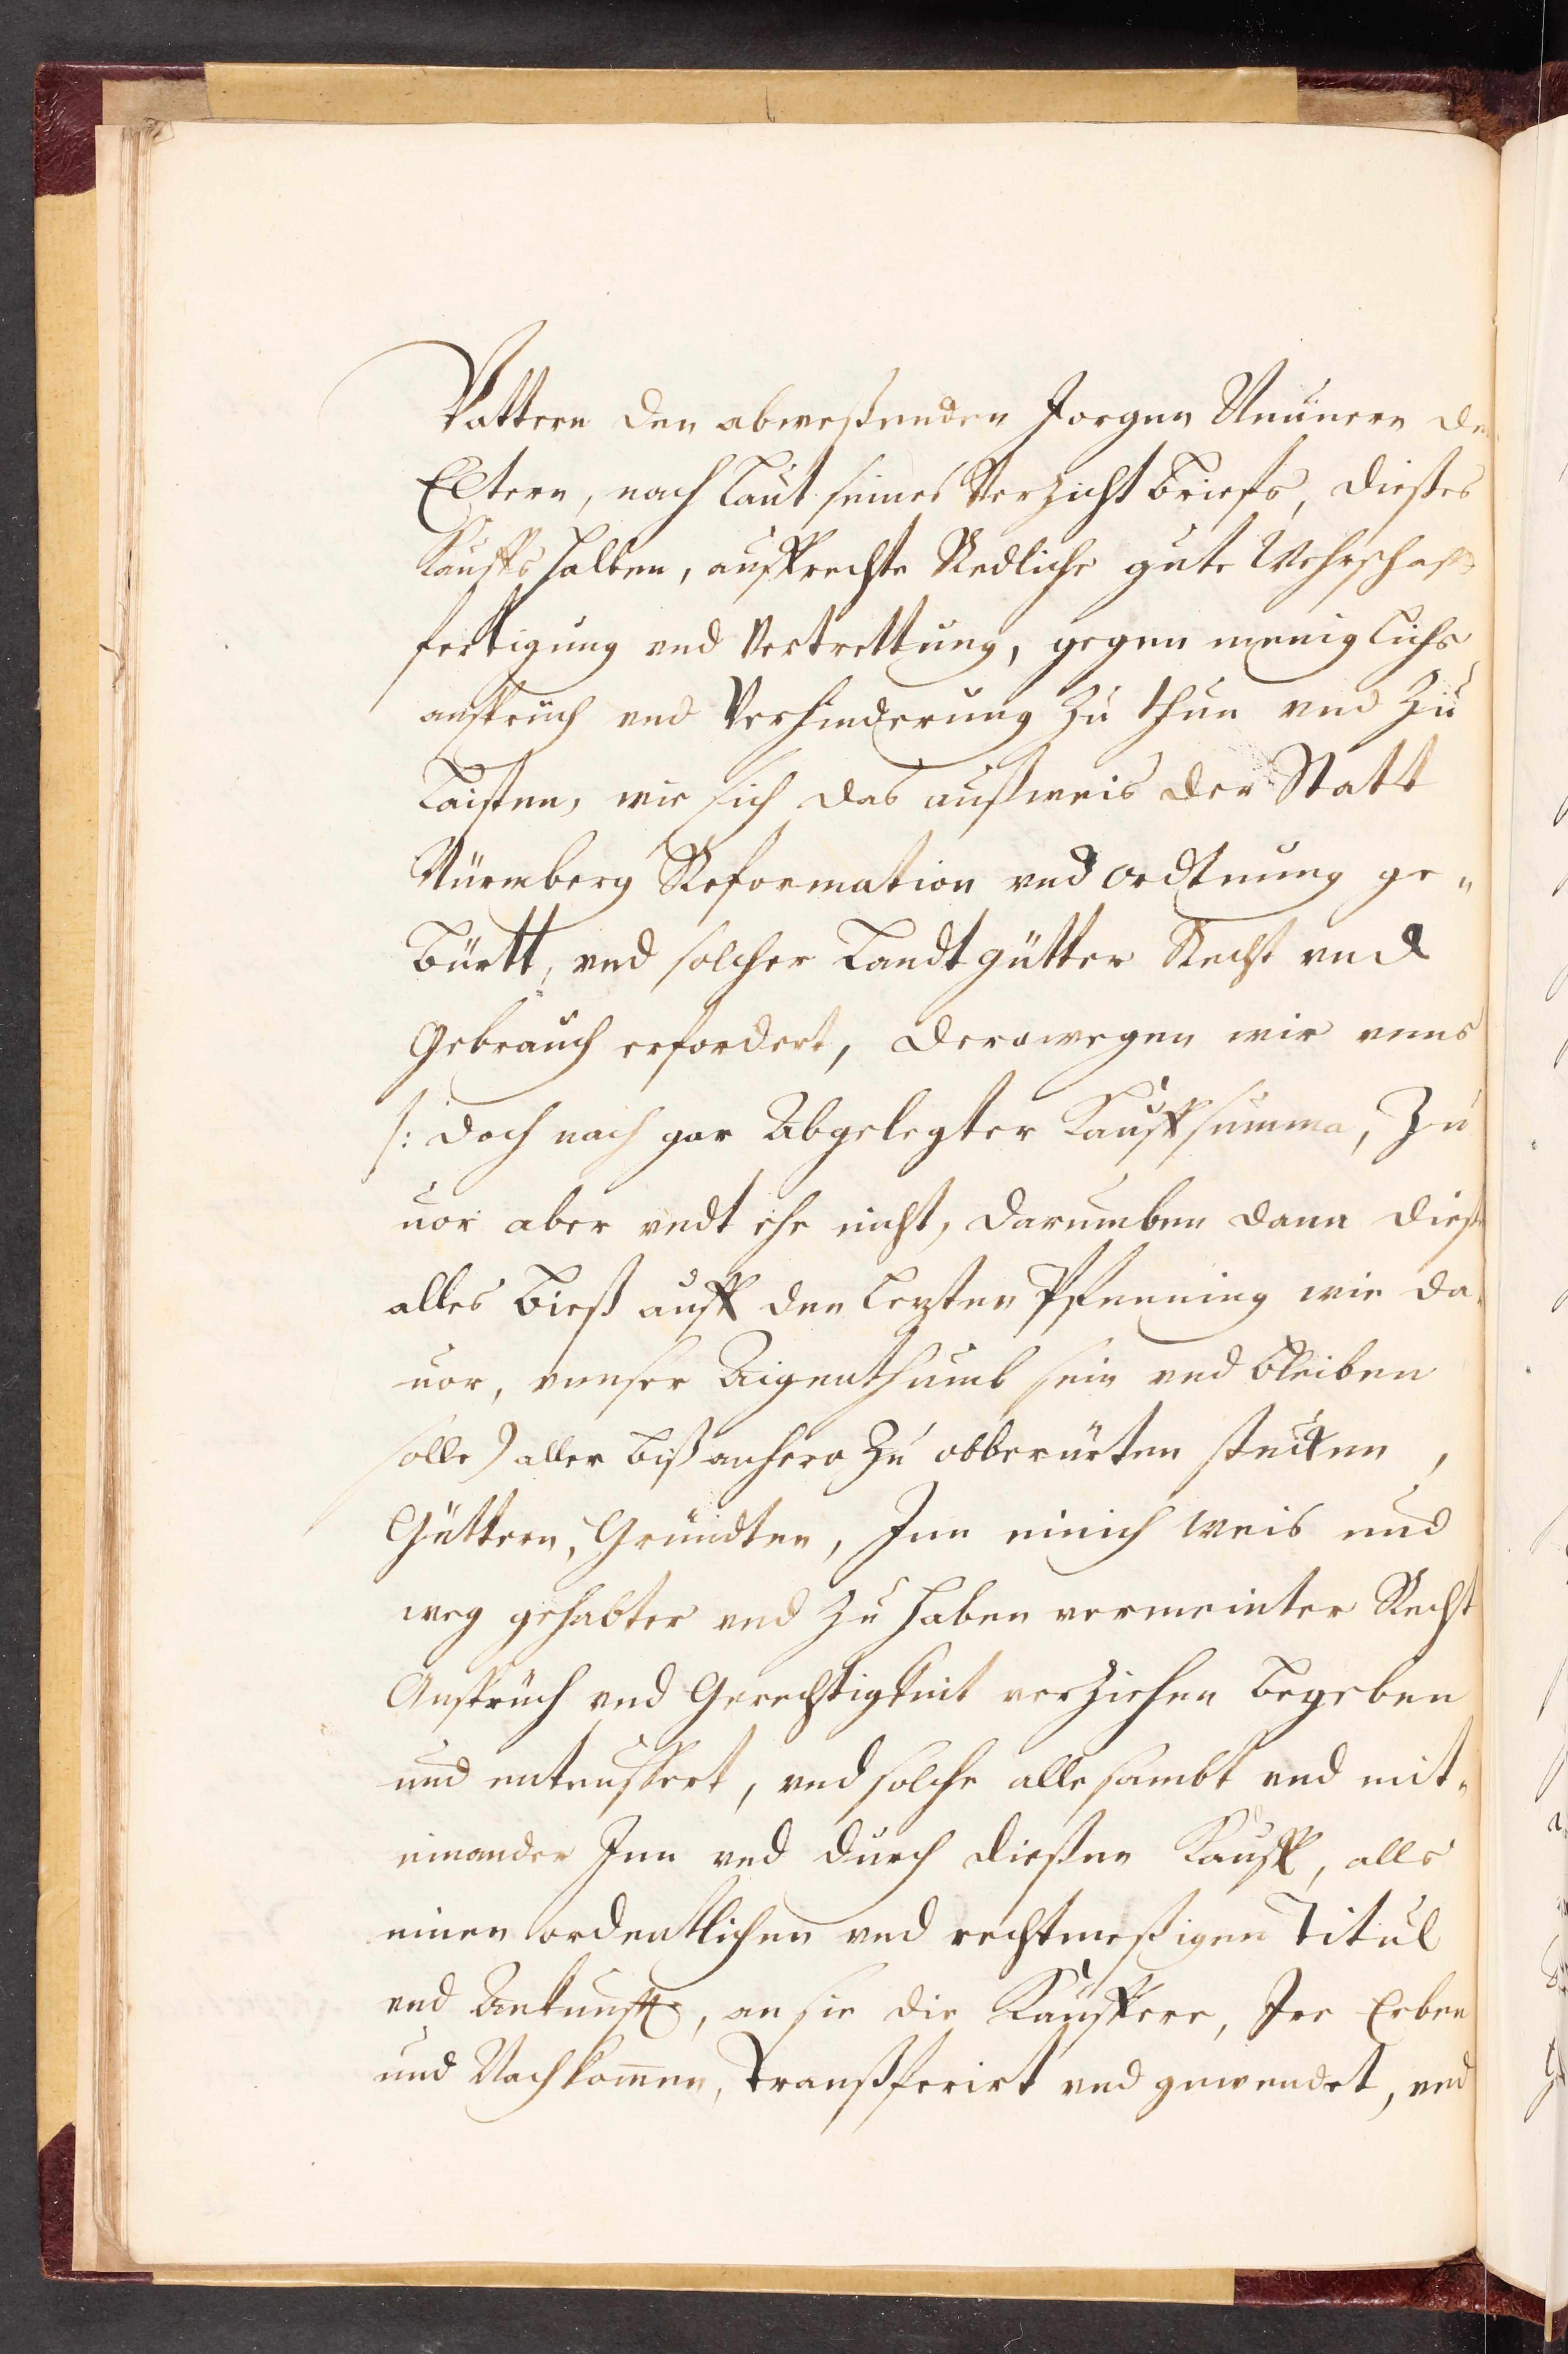 Vattern den abweßenden Jorgen Neunern de
Eltern, nach laut seines Verzicht briefs, dießes
Kauffs halben, auffrechte Redliche gute Wehrschafft
fertigung vnd Vertrettung, gegen meniglichs
anspruch vnd Verhinderung Zu thun vnd Zu
Laisten, wie sich das außweis der Statt
Nürmberg Reformation vnd ordtnung ge„
bürtt, vnd solcher Landtgütter Recht vnd
Gebrauch erfordert, derowegen wir vnns
/: doch nach gar Abgelegter Kauffsumma, Zu
uor aber vndt ehe nicht, darumben dann dieß
alles bieß auff den lezten Pfenning wie da„
uor, vnnser Aigenthumb sein vnd bleiben
solle) aller bißanhero Zu obberürten stucken,
Güttern, Gründten, Jnn einich weis und
weg gehabter vnd Zu haben vermeinter Recht
Anspruch vnd Gerechtigkeit verziehen begeben
und enteussert, vnd solche alle sambt vnd mit„
einander Jnn vnd durch dießen Kauff, alls
einen ordentlichen vnd rechtmeßigen Titul
vnd Ankunfft, an sie die Kauffere, Jre Erben
und Nachkom̄en, Transferirt vnd gewendet, vnd